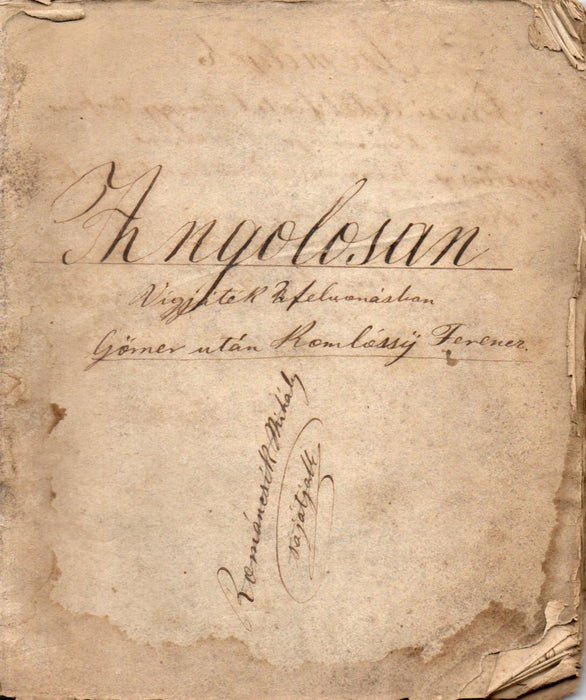 Angolosan
Vigjáték 2 felvonásban
Görner után Komlóssÿ Ferencz.
Románcsik Mihály
sajátjatt